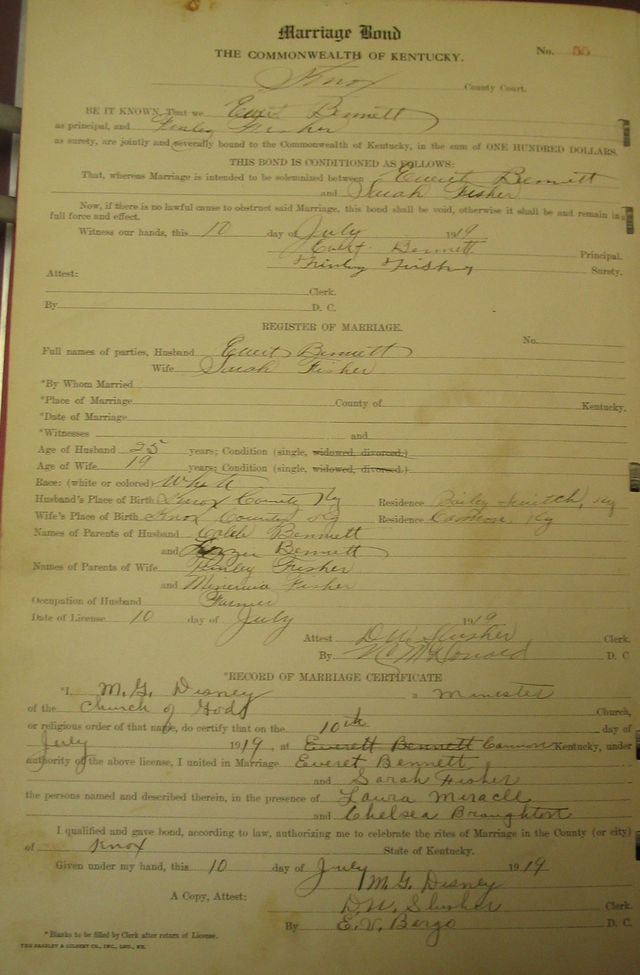 Marriage Bond
THE COMMONWEALTH OF KENTUCKY.
No. 55
Knox County Court.
BE IT KNOWN, That we Evert Bennett
as principal, and Finley Fisher
as surety, are jointly and severally bound to the Commonwealth of Kentucky, in the sum of ONE HUNDRED DOLLARS.
THIS BOND IS CONDITIONED AS FOLLOWS:
That, whereas Marriage is intended to be solemnized between Everett Bennett
and Sarah Fisher
Now, if there is no lawful cause to obstruct said Marriage, this bond shall be void, otherwise it shall be and remain in
full force and effect.
Witness our hands, this 10 day of July 1919
Evert Bennett Principal.
Finley Fisher Surety.
Attest:
Clerk.
By D. C.
REGISTER OF MARRIAGE.
No.
Full names of parties, Husband Evert Bennett
Wife Sarah Fisher
*By Whom Married
*Place of Marriage County of Kentucky.
*Date of Marriage
*Witnesses and
Age of Husband 25 years; Condition (single, widowed, divorced.)
Age of Wife 19 years; Condition (single, widowed, divorced.)
Race: (white or colored) White
Husband's Place of Birth Knox County Ky Residence Bailey Switch, Ky
Wife's Place of Birth Knox County Ky Residence Cannon, Ky
Names of Parents of Husband Caleb Bennett
and Bennett
Names of Parents of Wife Finley Fisher
and Minervia Fisher
Occupation of Husband Farmer
Date of License 10 day of July 1919
Attest D.W. Slusher Clerk.
By McDonald D. C
*RECORD OF MARRIAGE CERTIFICATE
*I, M. G. Disney a Minester
of the Church of God Church,
or religious order of that name, do certify that on the 10th day of
July 1919, at Everett Bennett Cannon Kentucky, under
authority of the above license, I united in Marriage Everet Bennett
and Sarah Fisher
the persons named and described therein, in the presence of Laura Miracle
and Chelsea Braughton
I qualified and gave bond, according to law, authorizing me to celebrate the rites of Marriage in the County (or city)
of Knox State of Kentucky.
Given under my hand, this 10 day of July 1919
M. G. Disney
A Copy, Attest:
D.W. Slusher Clerk.
By E. V. Bargo D. C.
*Blanks to be filled by Clerk after return of License.
THE BRADLEY & GILBERT CO., INC., LOU., KY.